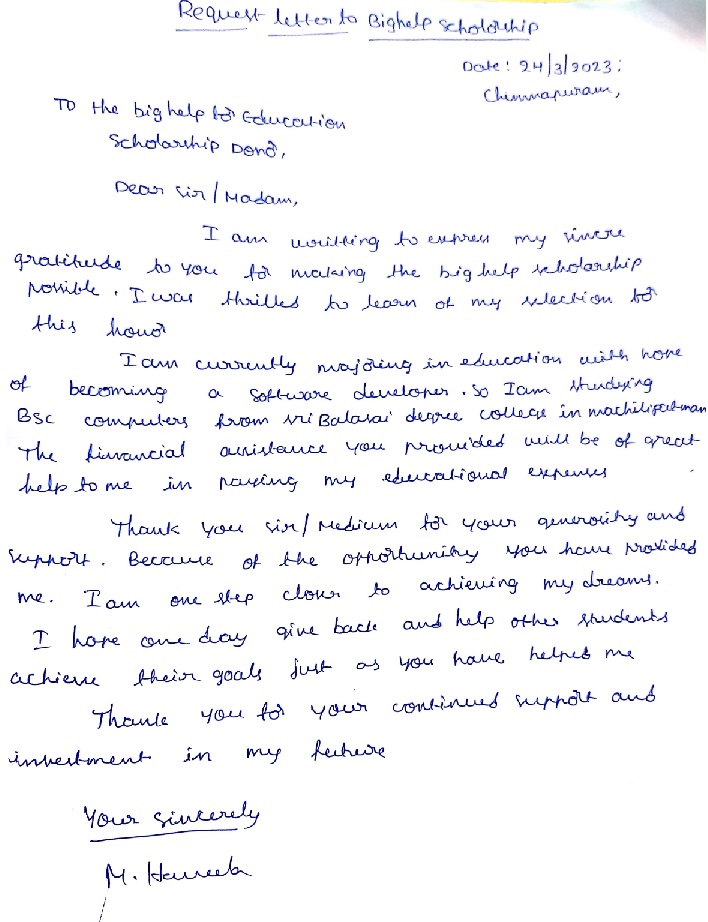 Request letter to Bighelp scholorship
Date: 24/3/2023:
Chinnapuram,
To the big help for Education
Scholarship Donor,
Dear Sir/Madam,
I am writting to express my sincere
gratitude to you for making the big help scholarship
possible. I was thrilled to learn of my selection for
this honor
I am currently majoring in education with hope
of becoming a software developer. So I am studying
BSC computers from sri Balasai degree college in machilipatnam
The financial assistance you provided will be of great
help to me in paying my educational expenses
Thank you sir/Medium for your generosity and
support. Because of the opportunity you have provided
me. I am one step closer to achieving my dreams.
I hope one day give back and help other students
achieve their goals just as you have helped me
Thank you for your continued support and
investment in my future
Your sincerely
M.